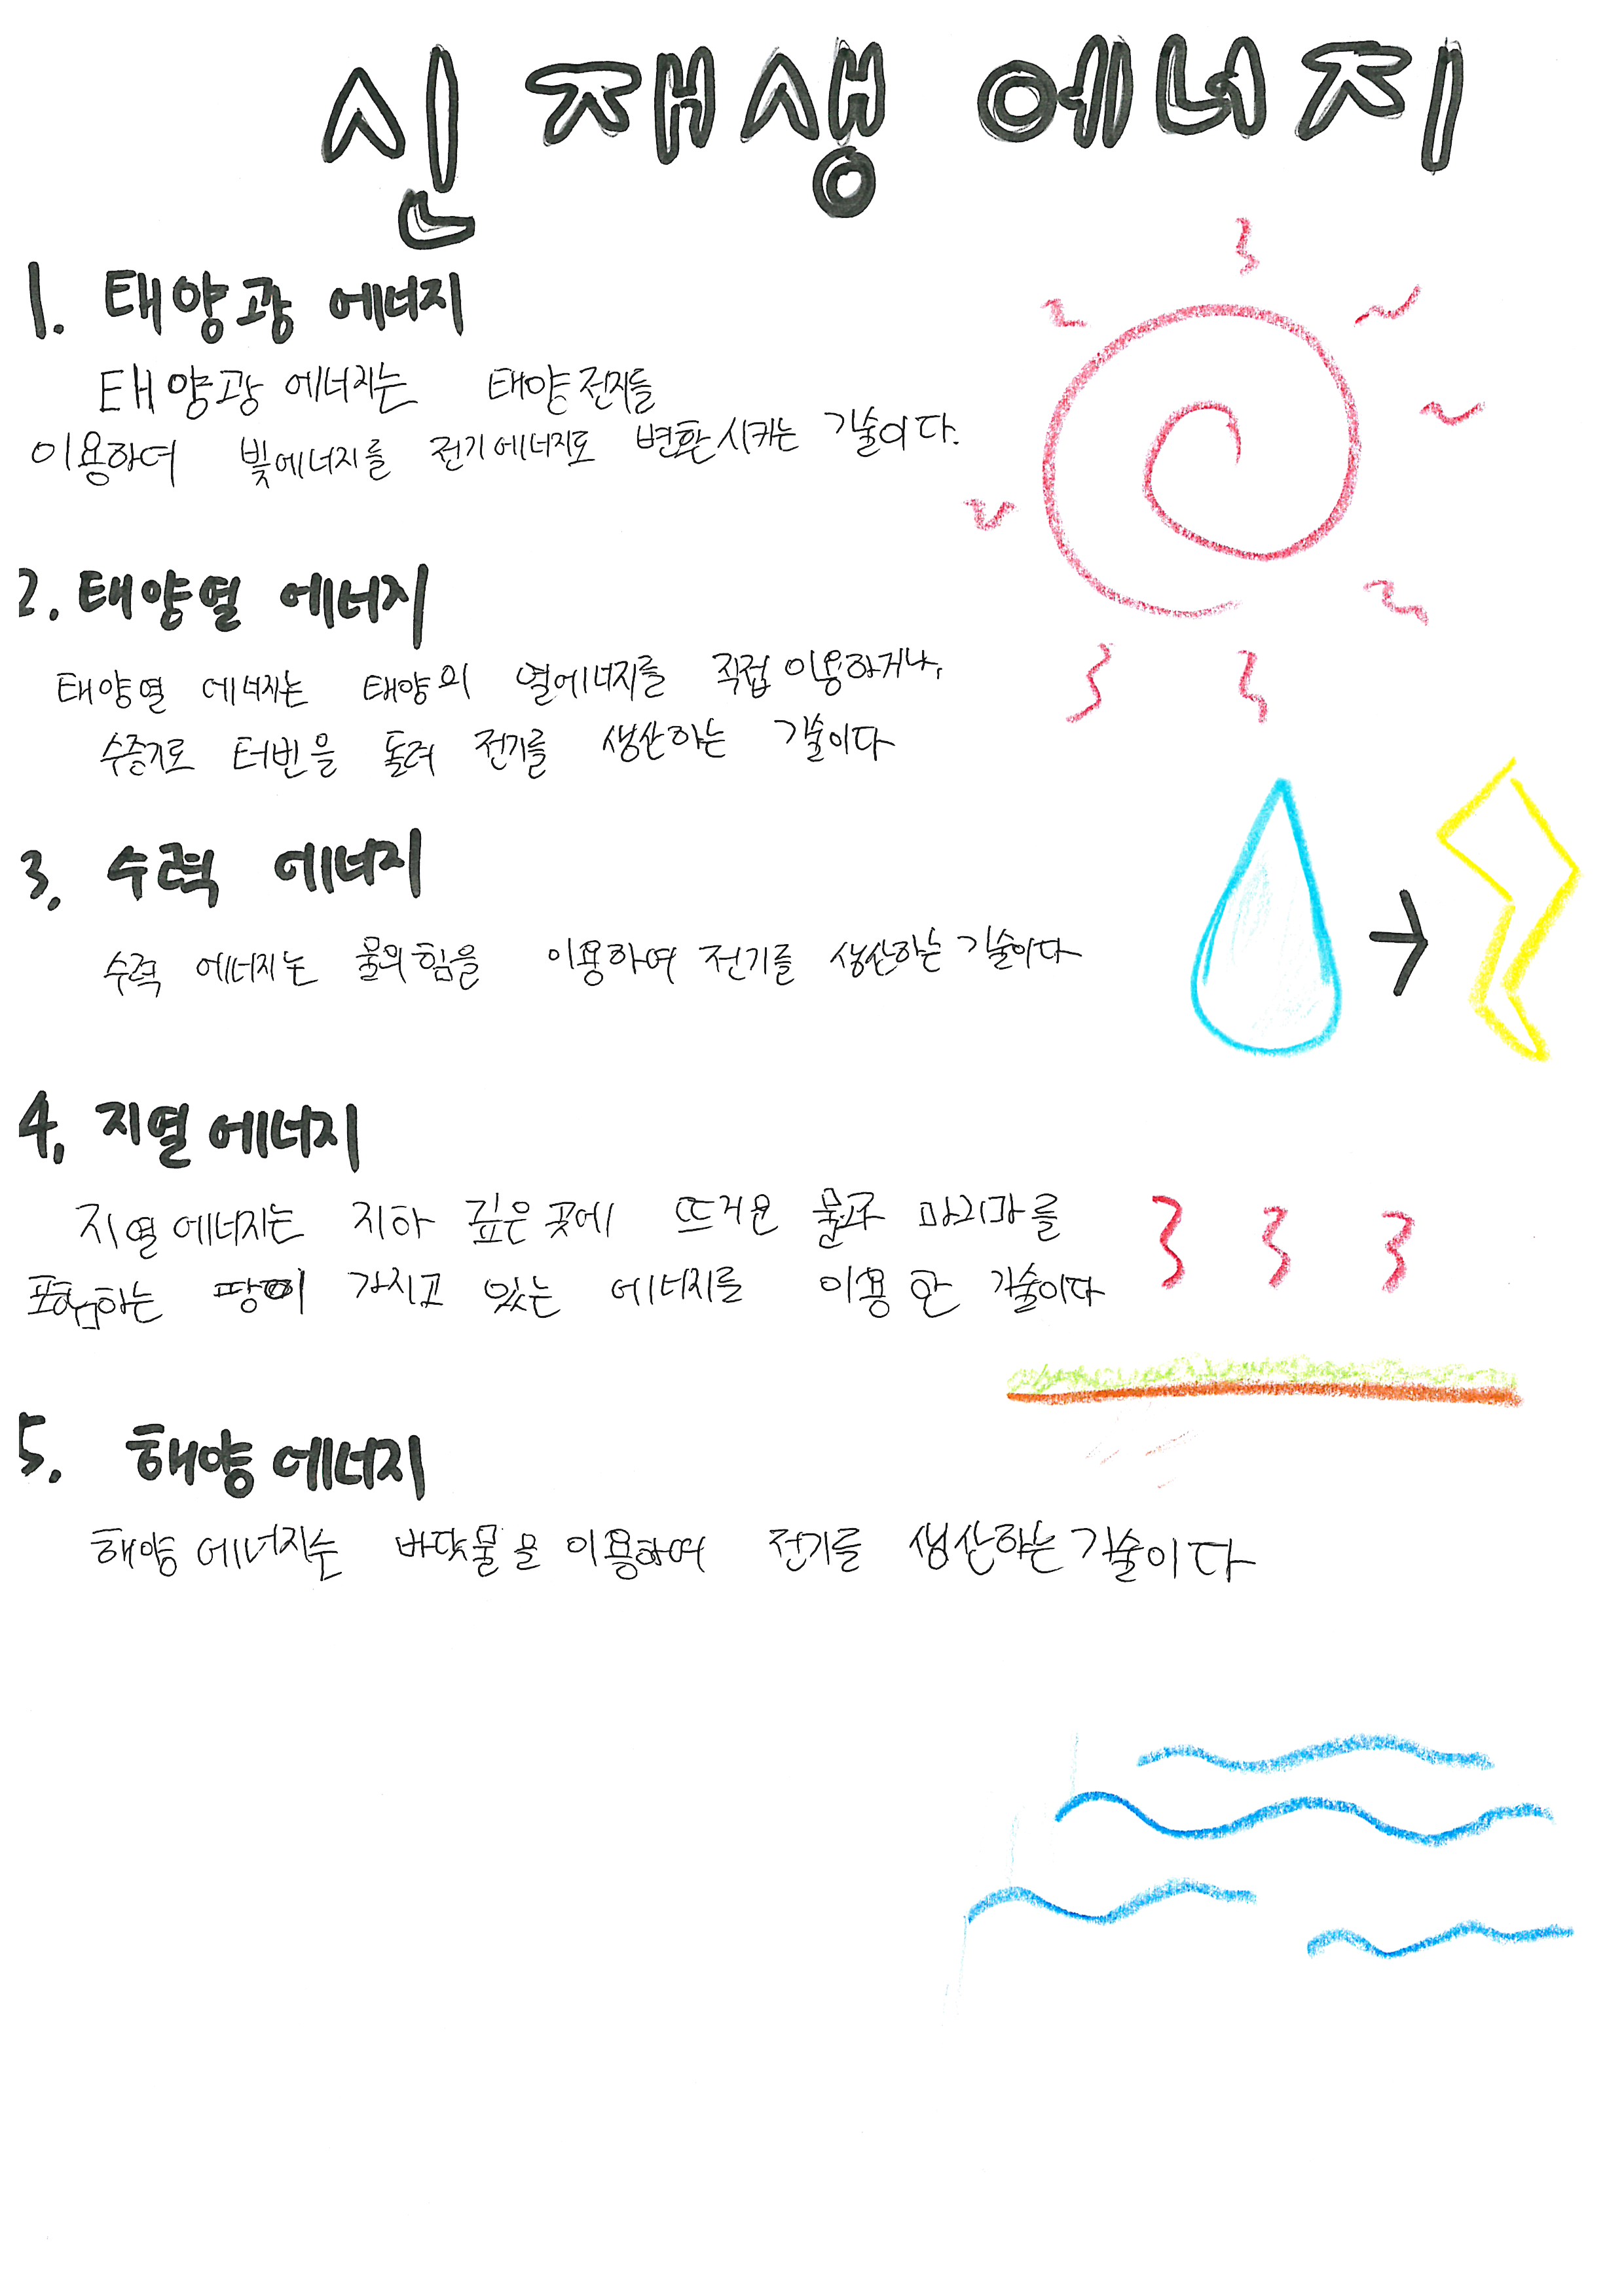 신재생 에너지
1. 태양광 에너지
태양광 에너지는 태양전지를
이용하여 빛에너지를 전기에너지로 변환시키는 기술이다.
2. 태양열 에너지
태양열 에너지는 태양의 열에너지를 직접 이용하거나,
수증기로 터빈을 돌려 전기를 생산하는 기술이다
3. 수력 에너지
수력 에너지는 물의 힘을 이용하여 전기를 생산하는 기술이다
4. 지열 에너지
지열 에너지는 지하 깊은 곳에 뜨거운 물과 마그마를
포함하는 땅이 가지고 있는 에너지를 이용한 기술이다
5. 해양 에너지
해양 에너지는 바닷물을 이용하여 전기를 생산하는 기술이다